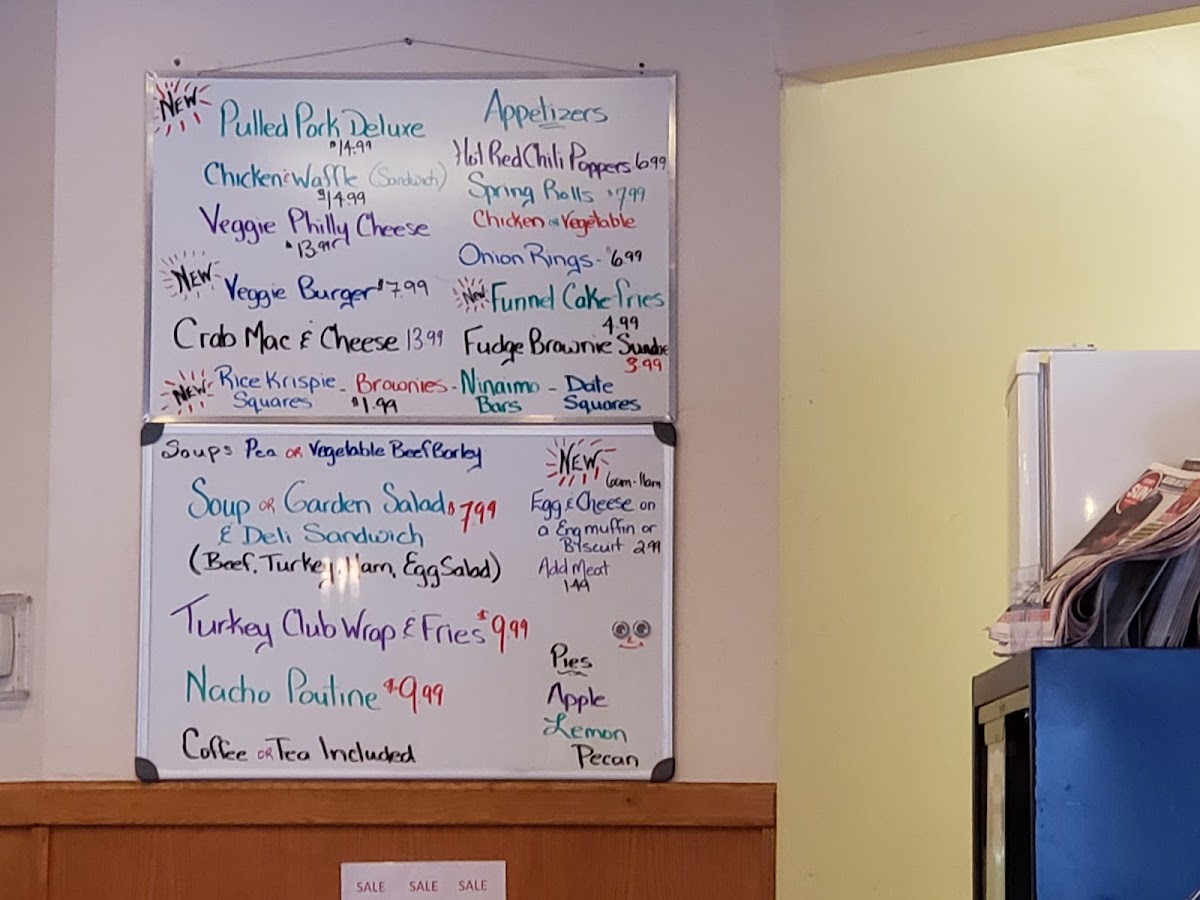 NEW
Pulled Pork Deluxe
$14.99
Chicken & Waffle (Sandwich)
$14.99
Veggie Philly Cheese
$13.99
NEW
Veggie Burger $7.99
Crab Mac & Cheese 13.99
Appetizers
Hot Red Chili Poppers 6.99
Spring Rolls $7.99
Chicken or Vegetable
Onion Rings - $6.99
New Funnel Cake fries
4.99
Fudge Brownie Sundae
3.99
NEW
Rice Krispie - Brownies - Ninaimo - Date
Squares $1.99 Bars Squares
Soups Pea OR Vegetable Beef Barley
Soup OR Garden Salad $7.99
& Deli Sandwich
(Beef, Turkey, Ham, Egg Salad)
Turkey Club Wrap & Fries $9.99
Nacho Poutine $9.99
Coffee OR Tea Included
NEW
6am-11am
Egg & Cheese on
a Eng muffin or
Biscuit 2.99
Add Meat
1.49
Pies
Apple
Lemon
Pecan
SALE SALE SALE